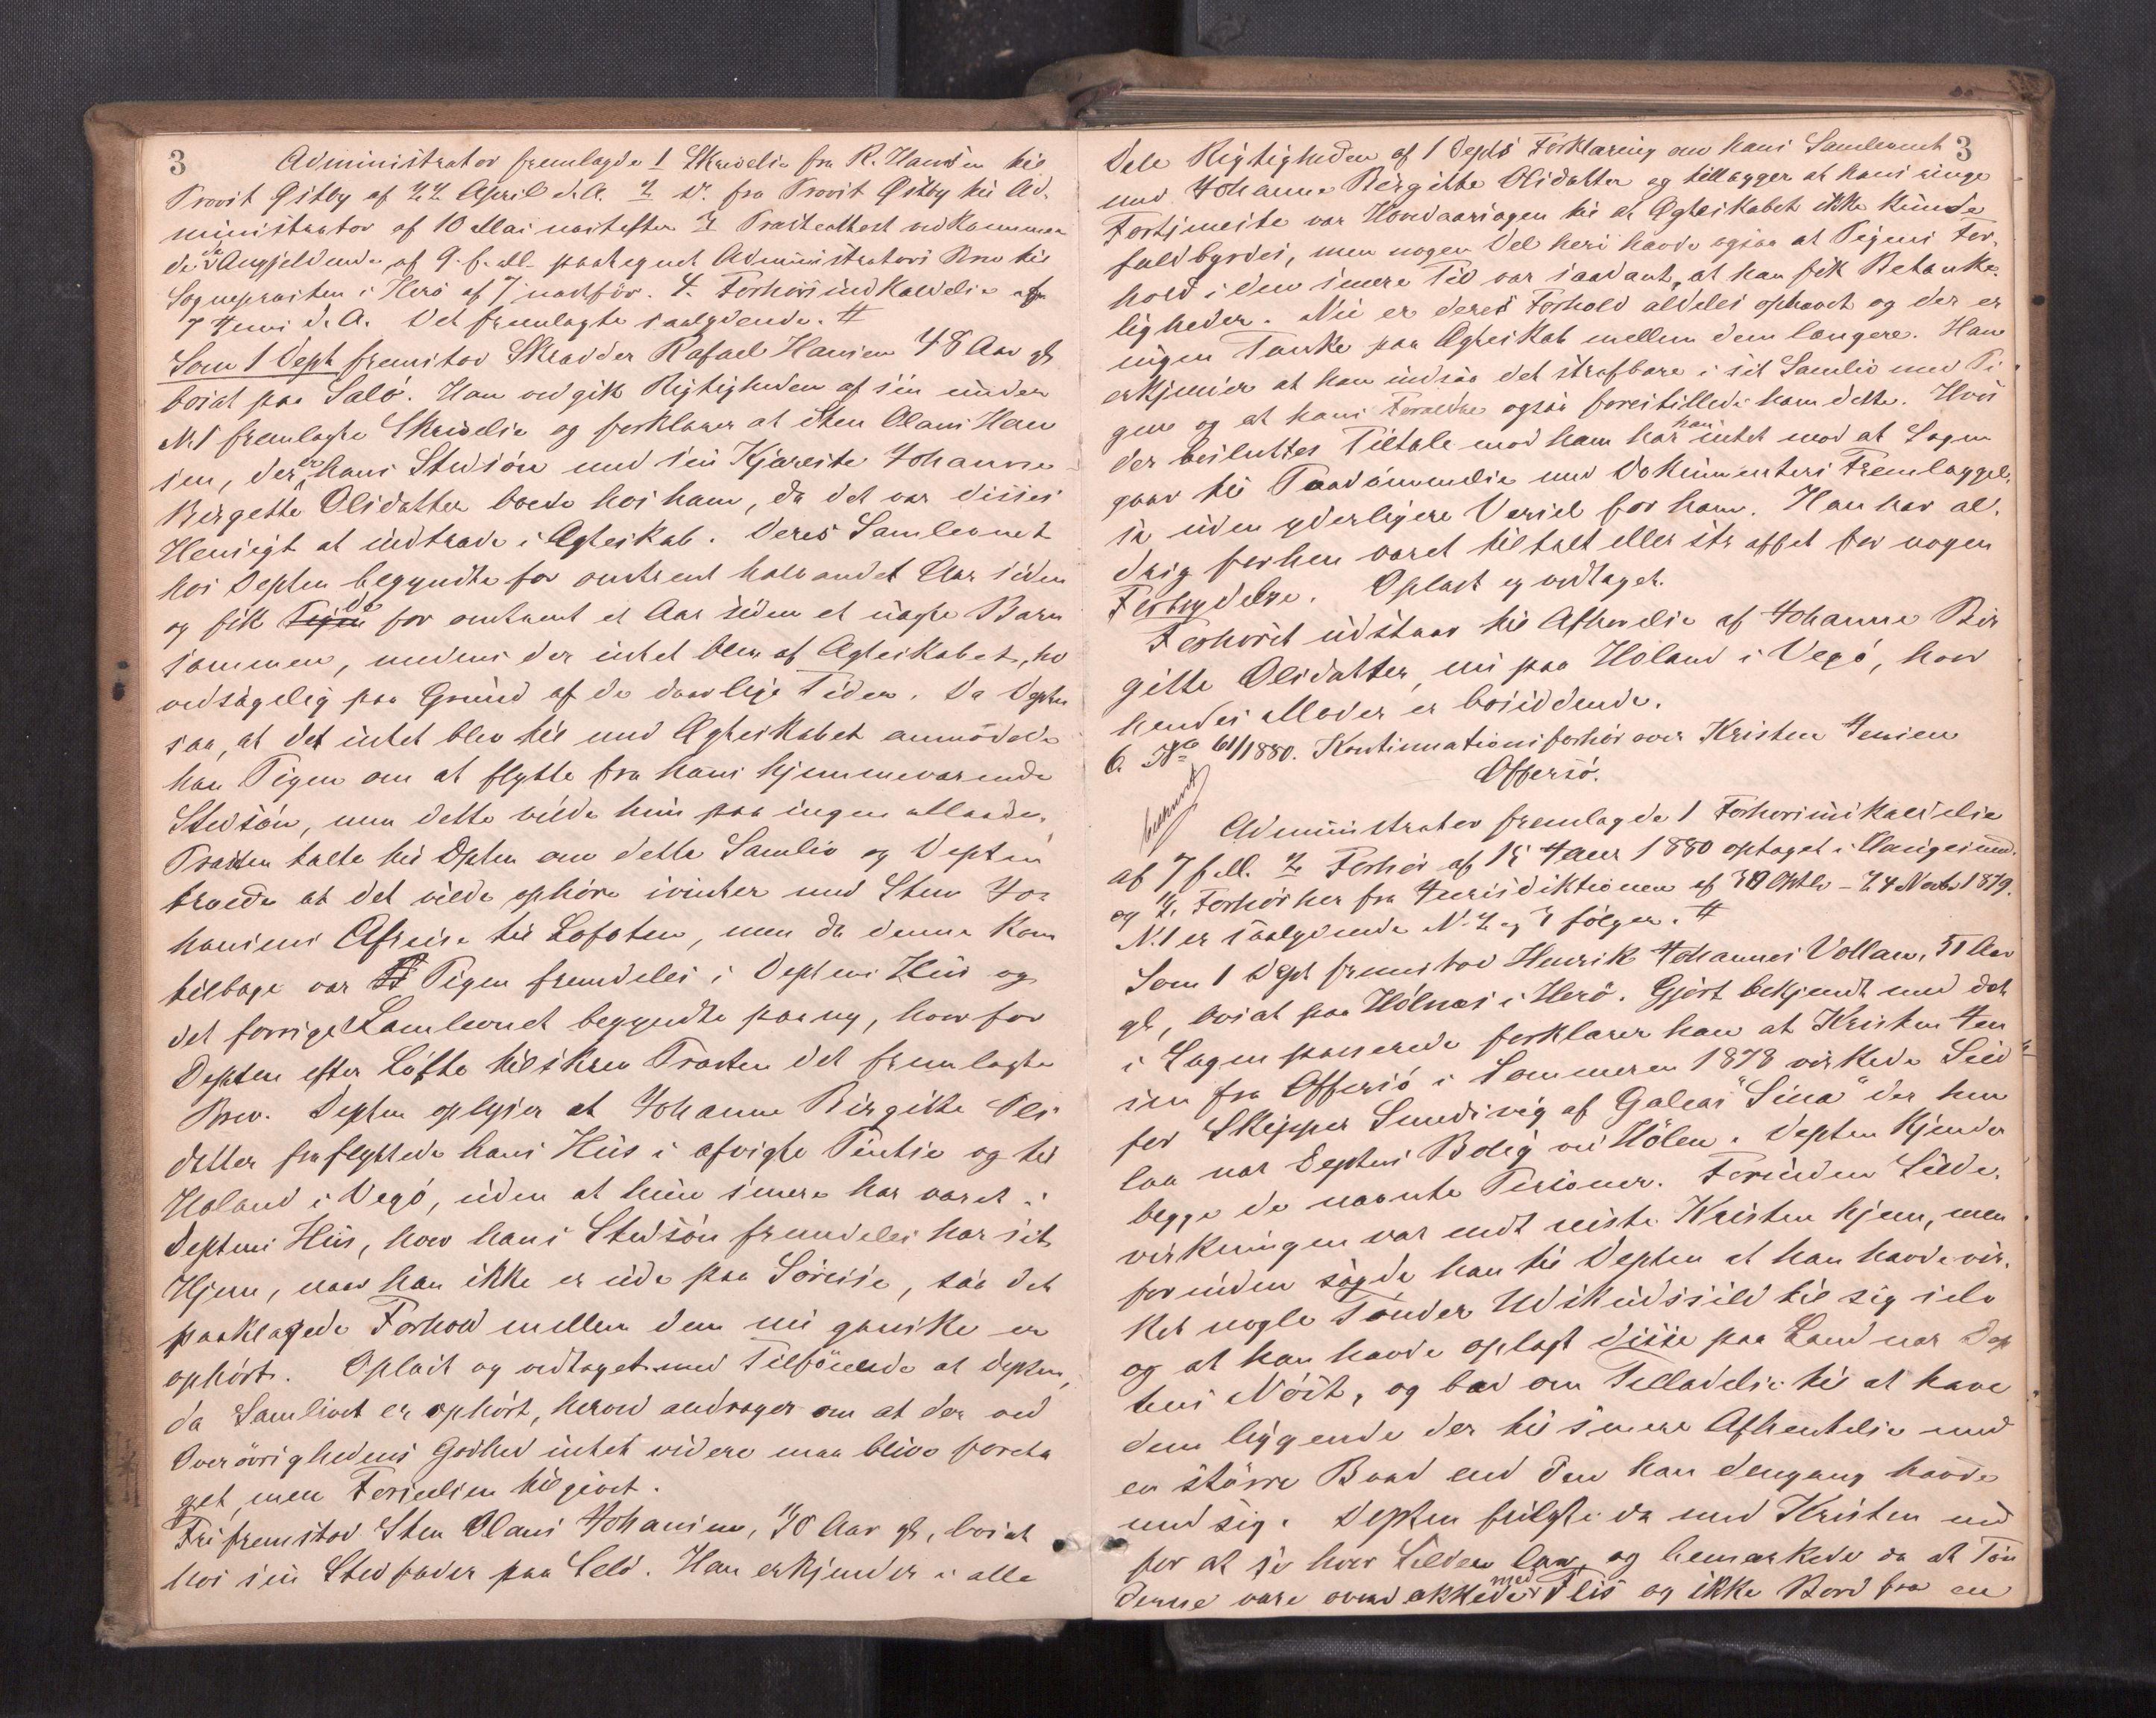 3
Administrator fremlagde 1 Skrivelse fra R. Hansen til
Provst Østby af 22 April d.A. 2 do. fra Provst Østby til Ad-
ministrator af 10 Mai næstefter 3 Præsteattest vedkommen
de de Angjeldende af 9. f. M. paategnet Administrators Brev til
Sognepræsten i Herø af 7 næstfør. 4. Forhørsindkaldelse af
7 Juni d.A. Det fremlagte saalydende. #
Som 1 Dept fremstod Skrædder Rafael Hansen 48 Aar gl
bosat paa Salø. Han vedgik Rigtigheden af sin under
No 1 fremlagte Skrivelse og forklarer at Sten Olaus Han
sen, der er hans Stedsøn med sin Kjæreste Johanne
Birgitte Olsdatter boede hos ham, da det var disses
Hensigt at indtræde i Ægteskab. Deres Samlevnet
hos Depten begyndte for omtrent halvandet Aar siden
og fik Pigen de for omtrent et Aar siden et uægte Barn
sammen, medens der intet blev af Ægteskabet, ho
vedsagelig paa Grund af de daarlige Tider. Da Depten
saa, at det intet blev til med Ægteskabet anmodede
han Pigen om at flytte fra hans hjemmeværende
Stedsøn, men dette vilde hun paa ingen Maade.
Præsten talte til Depten om dette Samliv og Depten
troede at det vilde ophøre ivinter med Sten Jo-
hansens Afreise til Lofoten, men da denne kom
tilbage var Pigen fremdeles i Deptens Hus og
det forrige Samlevnet begyndte paany, hvorfor
Depten efter Løfte tilskrev Præsten det fremlagte
Brev. Depten oplyser at Johanne Birgitte Ols
datter fraflyttede hans Hus i afvigte Pintse og til
Holand i Vegø, uden at hun senere har været i
Deptens Hus, hvor hans Stedsøn fremdeles har sit
Hjem, naar han ikke er ude paa Søreise, saa det
paaklagede Forhold mellem dem nu ganske er
ophørt. Oplæst og vedtaget med Tilføiende at Depten,
da Samlivet er ophørt, herved andrager om at der ved
Overøvrighedens Godhed intet videre maa blive foreta
get, men Forseelsen tilgivet.
Fri fremstod Sten Olaus Johansen, 30 Aar gl, bosat
hos sin Stedfader paa Selø. Han erkjender i alle
3
Dele Rigtigheden af 1 Depts Forklaring om hans Samlevnet
med Johanne Birgitte Olsdatter og tillægger at hans ringe
Fortjeneste var Hovedaarsagen til at Ægteskabet ikke kunde
fuldbyrdes, men nogen Del heri havde ogsaa at Pigens For-
hold i den senere Tid var saadant, at han fik Betænke-
ligheder. Nu er deres Forhold aldeles ophævet og der er
ingen Tanke paa Ægteskab mellem dem længere. Han
erkjender at han indsaa det strafbare i sit Samliv med Pi-
gen og at hans Forældre ogsaa forestillede ham dette. Hvis
der besluttes Tiltale mod ham har han intet mod at Sagen
gaar til Paadømmelse med Dokumenters Fremlæggel-
se uden yderligere Varsel for ham. Han har al-
drig forhen været tiltalt eller straffet for nogen
Forbrydelse. Oplæst og vedtaget.
Forhøret udstaar til Afhørelse af Johanne Bir
gitte Olsdatter, nu paa Holand i Vegø, hvor
hendes Moder er bosiddende.
6. No 61/1880. Kontinuationsforhør over Kristen Jensen
Offersø.
Administrator fremlagde 1 Forhørsindkaldelse
af 7 f.M. 2 Forhør af 15 Janr 1880 optaget i Klungesund.
og 3. Forhør her fra Jurisdiktionen af 30 Optbr - 24 Novbr 1879.
N.1 er saalydende N.2 og 3 følger. #
Som 1 Dept fremstod Henrik Johannes Vollan, 51 Aar
gl, bosat paa Hølnæs i Herø. Gjort bekjendt med det
i Sagen passerede forklarer han at Kristen Jen
sen fra Offersø i Sommeren 1878 virkede Sild
for Skipper Sundsvig af Galeas "Sina" der hen
laa nær Deptens Bolig ved Hølen. Depten kjender
begge de nævnte Personer. Forinden Silde-
virkningen var endt reiste Kristen hjem, men
forinden sagde han til Depten at han havde vir-
ket nogle Tønder Udskudssild til sig selv
og at han havde oplagt disse paa Land nær Dep
tens Nøst, og bad om Tilladelse til at have
dem liggende der til senere Afhentelse med
en større Baad end den han dengang havde
med sig. Depten fulgte da med Kristen ned
for at se hvor Silden laa, og bemærkede da at Tøn
derne vare overdækkede med Flis og ikke Bord fra en